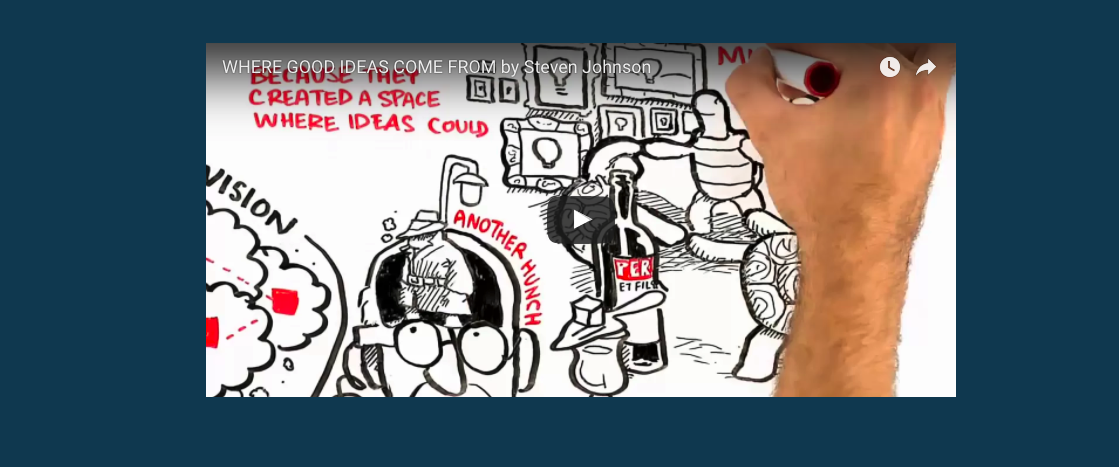 WHERE GOOD IDEAS COME FROM by Steven Johnson
BECAUSE THEY
CREATED A SPACE
WHERE IDEAS COULD
VISION
ANOTHER HUNCH
PER
ET FILS